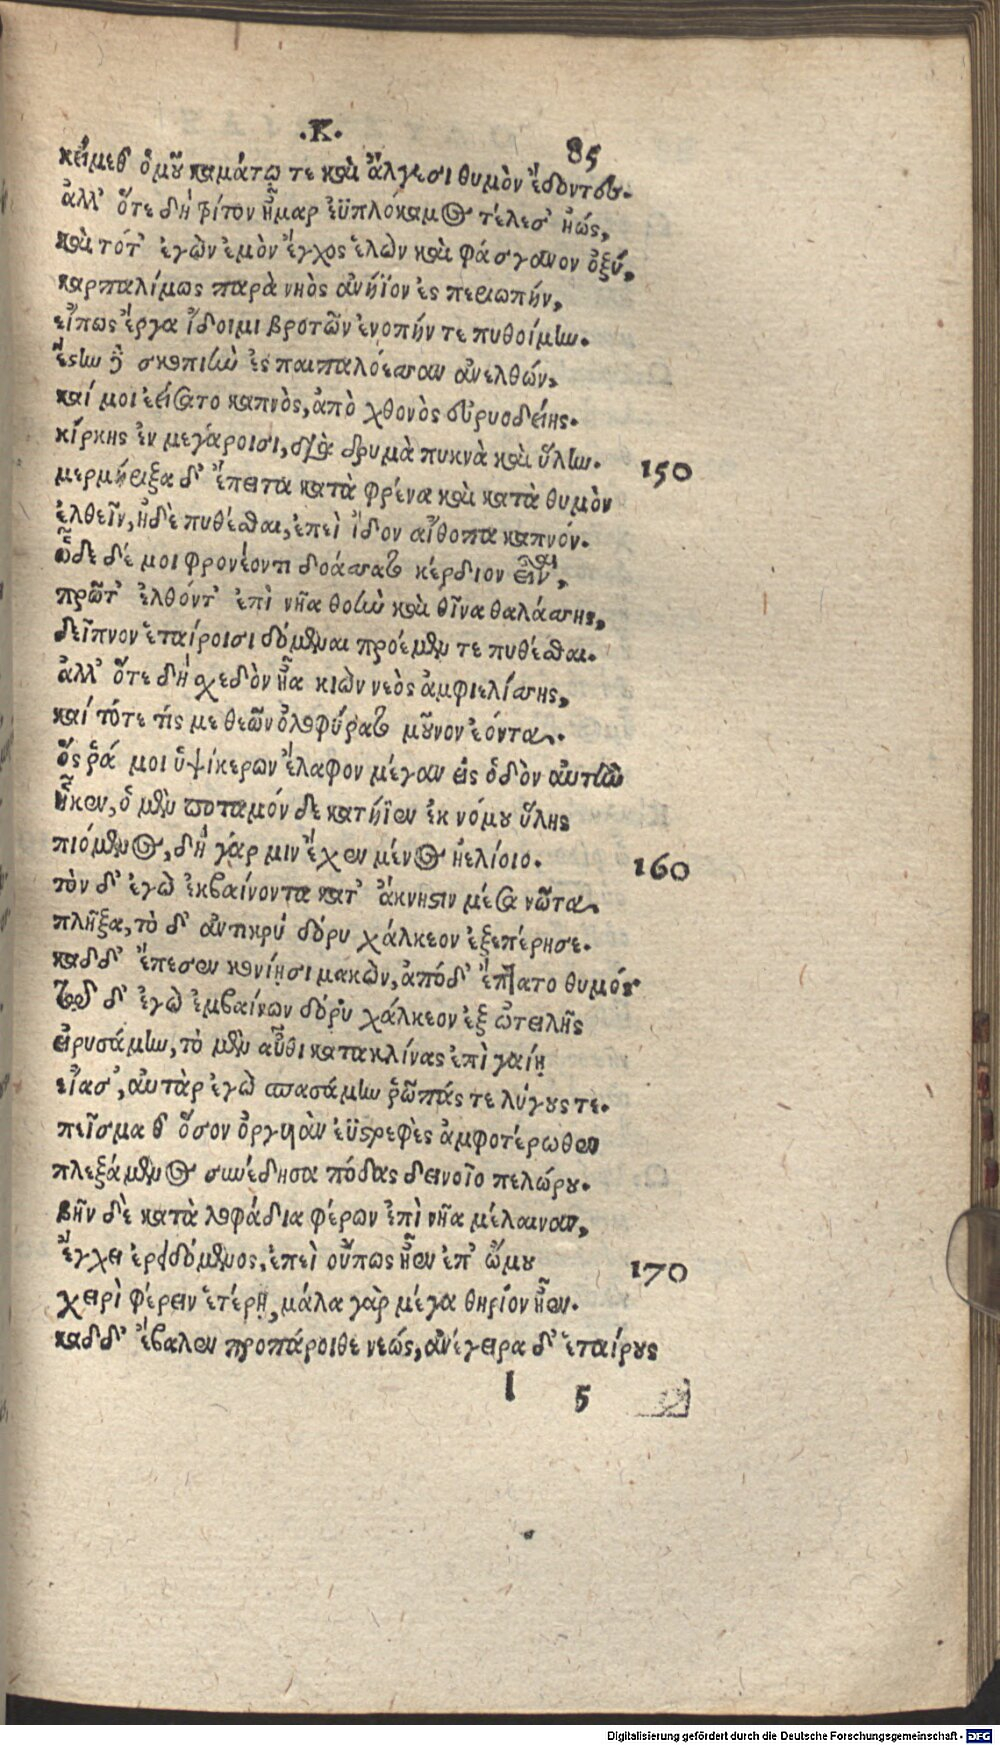 .Κ. 85
κείμεθ᾽ ὁμοῦ καμάτῳ τε καὶ ἄλγεσι θυμὸν ἔδοντες.
ἀλλ᾽ ὅτε δὴ τρίτον ἦμαρ ἐϋπλόκαμος τέλεσ᾽ ἠώς,
καὶ τότ᾽ ἐγὼν ἐμὸν ἔγχος ἑλὼν καὶ φάσγανον ὀξύ,
καρπαλίμως παρὰ νηὸς ἀνήϊον ἐς περιωπήν,
εἴπως ἔργα ἴδοιμι βροτῶν ἐνοπήν τε πυθοίμην.
ἔστην δὲ σκοπιὴν ἐς παιπαλόεσσαν ἀνελθών,
καί μοι ἐείσατο καπνὸς, ἀπὸ χθονὸς εὐρυοδείης.
κίρκης ἐν μεγάροισι, διὰ δρυμὰ πυκνὰ καὶ ὕλην. 150
μερμήριξα δ᾽ ἔπειτα κατὰ φρένα καὶ κατὰ θυμὸν
ἐλθεῖν, ἠδὲ πυθέσθαι, ἐπεὶ ἴδον αἴθοπα καπνόν.
ὧδε δέ μοι φρονέοντι δοάσσατο κέρδιον εἶναι,
πρῶτ᾽ ἐλθόντ᾽ ἐπὶ νῆα θοὴν καὶ θῖνα θαλάσσης,
δεῖπνον ἑταίροισι δόμεναι προέμεν τε πυθέσθαι.
ἀλλ᾽ ὅτε δὴ σχεδὸν ἦα κιὼν νεὸς ἀμφιελίσσης,
καί τότε τίς με θεῶν ὀλοφύρατο μοῦνον ἐόντα.
ὅς ῥά μοι ὑψίκερων ἔλαφον μέγαν εἰς ὁδὸν αὐτὴν
ἧκεν, ὁ μὲν ποταμόν δε κατήϊεν ἐκ νόμου ὕλης
πιόμενος, δὴ γάρ μιν ἔχεν μένος ἠελίοιο. 160
τὸν δ᾽ ἐγὼ ἐκβαίνοντα κατ᾽ ἄκνηστιν μέσα νῶτα
πλῆξα, τὸ δ᾽ ἀντικρύ δόρυ χάλκεον ἐξεπέρησε.
καδδ᾽ ἔπεσεν κονίῃσι μακὼν, ἀπό δ᾽ ἔπτατο θυμός
τῷ δ᾽ ἐγὼ ἐμβαίνων δόρυ χάλκεον ἐξ ὠτειλῆς
εἰρυσάμην, τὸ μὲν αὖθι κατακλίνας ἐπὶ γαίῃ
εἴασ᾽, αὐτὰρ ἐγὼ σπασάμην ῥῶπάς τε λύγους τε.
πεῖσμα θ᾽ ὅσον ὀργυιὰν ἐϋστρεφὲς ἀμφοτέρωθεν
πλεξάμενος συνέδησα πόδας δεινοῖο πελώρου.
βῆν δὲ κατὰ λοφάδια φέρων ἐπὶ νῆα μέλαιναν,
ἔγχει ἐρειδόμενος, ἐπεὶ οὔπως ἦεν ἐπ᾽ ὤμου 170
χειρὶ φέρειν ἑτέρῃ, μάλα γὰρ μέγα θηρίον ἦεν.
καδδ᾽ ἔβαλεν προπάροιθε νεώς, ἀνέγειρα δ᾽ ἑταίρους
l 5
Digitalisierung gefördert durch die Deutsche Forschungsgemeinschaft - DFG